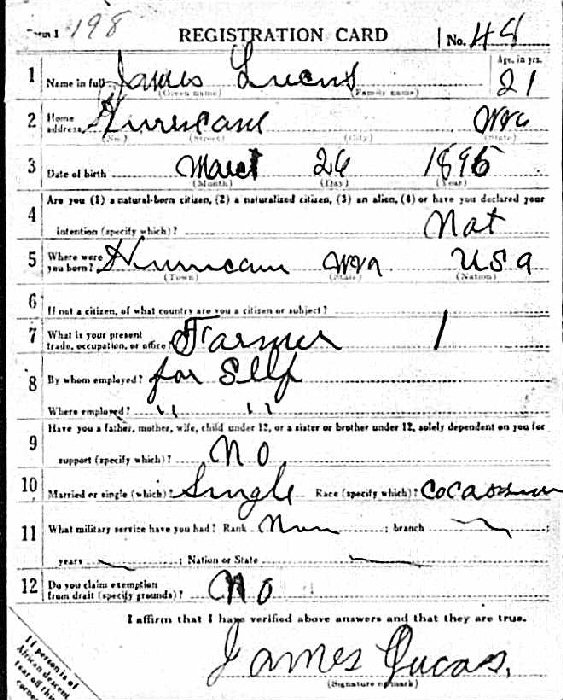 Form 1 198 REGISTRATION CARD No. 48
Age, in yrs.
1 Name in full James Lucas 21
(Given name) (Family name)
2 Home address Hurricane WVa
(No.) (Street) (City) (State)
3 Date of birth March 26 1896
(Month) (Day) (Year)
4 Are you (1) a natural-born citizen, (2) a naturalized citizen, (3) an alien, (4) or have you declared your
intention (specify which)? Nat
5 Where were you born? Hurricane WVa USA
(Town) (State) (Nation)
6 If not a citizen, of what country are you a citizen or subject?
7 What is your present trade, occupation, or office? Farmer 1
8 By whom employed? for Self
Where employed? " "
9 Have you a father, mother, wife, child under 12, or a sister or brother under 12, solely dependent on you for
support (specify which)? No
10 Married or single (which)? Single Race (specify which)?
11 What military service have you had? Rank None ; branch ;
years ; Nation or State
12 Do you claim exemption from draft (specify grounds)? No
I affirm that I have verified above answers and that they are true.
James Lucas.
(Signature or mark)
If person is
of African descent
tear off this
corner